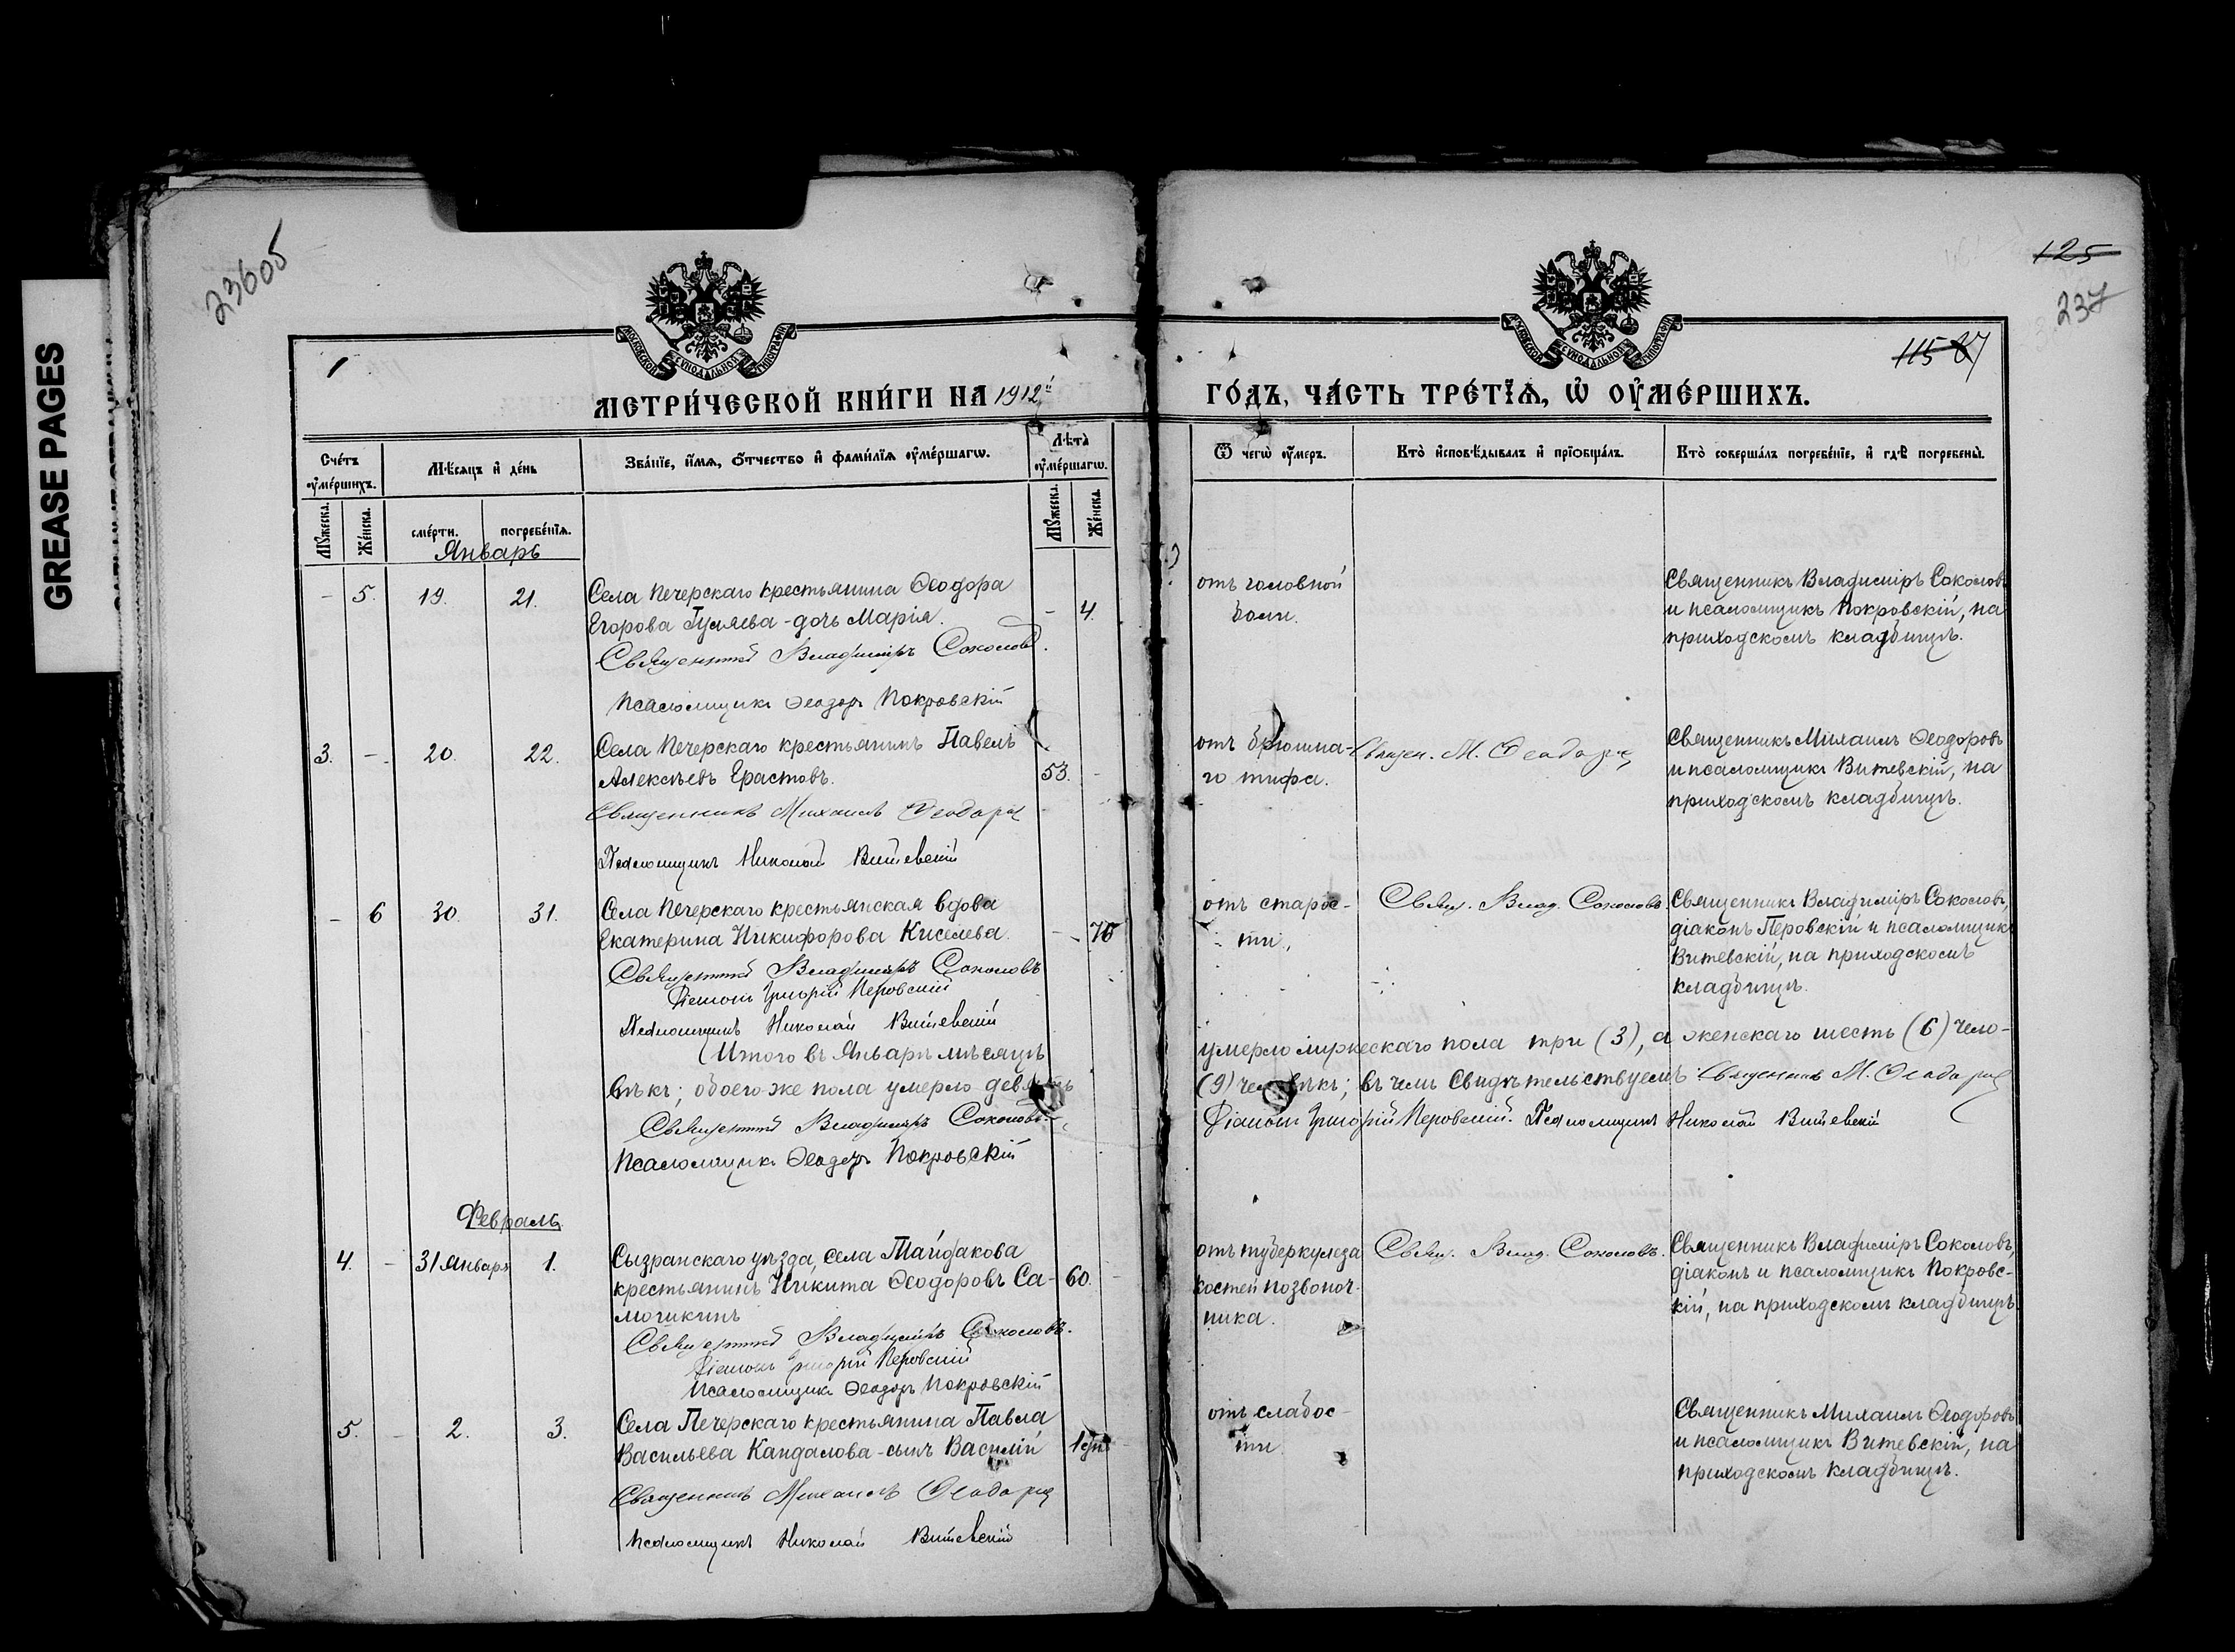 GREASE PAGES
23605
125
237
115 87
МОСКОВСКОЙ СѴНОДАЛЬНОЙ ТИПОГРАФІИ
МОСКОВСКОЙ СѴНОДАЛЬНОЙ ТИПОГРАФІИ
МЕТРИ́ЧЕСКОЙ КНИ́ГИ НА 1912й
ГО́ДЪ, ЧА́СТЬ ТРЕ́ТЇѦ, Ѡ҆ ОУ҆МЕ́РШИХЪ.
Сче́тъ оу҆ме́ршихъ.
Мѣ́сѧцъ и҆ де́нь
Зва́нїе, и҆́мѧ, ѻ҆́тчество и҆ фами́лїѧ оу҆ме́ршагѡ.
Лѣ̀та оу҆ме́ршагѡ.
Ѿ чегѡ̀ оу҆́меръ.
Кто̀ и҆сповѣ́дывалъ и҆ прїѻбща́лъ.
Кто̀ соверша́лъ погребе́нїе, и҆ гдѣ̀ погребены̀.
Мꙋ́жеска.
Же́нска.
сме́рти.
погребе́нїѧ.
Мꙋ́жеска.
Же́нска.
Январь
- 5. 19. 21. Села Печерскаго крестьянина Ѳеодора
Егорова Гуляева - дочь Марія. - 4.
Священникъ Владиміръ Соколовъ.
Псаломщикъ Ѳеодоръ Покровскій
отъ головной
боли.
Священникъ Владиміръ Соколовъ
и псаломщикъ Покровскій, на
приходскомъ кладбищѣ.
3. - 20. 22. Села Печерскаго крестьянинъ Павелъ
Алексѣевъ Ерастовъ. 53. -
Священникъ Михаилъ Ѳеодоровъ
Псаломщикъ Николай Витевскій
отъ брюшна-
го тифа.
Свящ. М. Ѳеодоровъ
Священникъ Михаилъ Ѳеодоровъ
и псаломщикъ Витевскій, на
приходскомъ кладбищѣ.
- 6 30. 31. Села Печерскаго крестьянская вдова
Екатерина Никифорова Киселева. - 76
Священникъ Владиміръ Соколовъ
Діаконъ Григорій Перовскій
Псаломщикъ Николай Витевскій
отъ старос-
ти.
Свящ. Влад. Соколовъ
Священникъ Владиміръ Соколовъ,
діаконъ Перовскій и псаломщикъ
Витевскій, на приходскомъ
кладбищѣ.
Итого въ Январѣ мѣсяцѣ умерло мужескаго пола три (3), а женскаго шесть (6) чело-
вѣкъ; обоего же пола умерло девять (9) человѣкъ; въ чемъ свидѣтельствуемъ Священникъ М. Ѳеодоровъ
Священникъ Владиміръ Соколовъ. Діаконъ Григорій Перовскій. Псаломщикъ Николай Витевскій
Псаломщикъ Ѳеодоръ Покровскій
Февраль
4. - 31 Января 1. Сызранскаго уѣзда, села Тайдакова
крестьянинъ Никита Ѳеодоровъ Са- 60. -
моцикинъ
Священникъ Владиміръ Соколовъ.
Діаконъ Григорій Перовскій
Псаломщикъ Ѳеодоръ Покровскій
отъ туберкулеза
костей позвоноч-
ника.
Свящ. Влад. Соколовъ.
Священникъ Владиміръ Соколовъ,
діаконъ и псаломщикъ Покровс-
кій, на приходскомъ кладбищѣ.
5. - 2. 3. Села Печерскаго крестьянина Павла
Васильева Кандалова - сынъ Василій
Священникъ Михаилъ Ѳеодоровъ
Псаломщикъ Николай Витевскій
отъ слабос-
ти.
Священникъ Михаилъ Ѳеодоровъ
и псаломщикъ Витевскій, на
приходскомъ кладбищѣ.